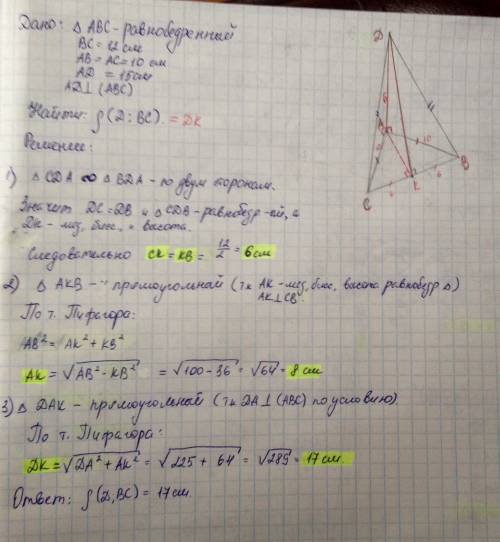 Дано: Δ ABC - равнобедренный
BC = 12 см
AB = AC = 10 см
AD = 15 см
AD ⊥ (ABC)
Найти: ρ (D; BC). = DK
Решение:
1) Δ CDA ∞ Δ BDA - по двум сторонам.
Значит DC = DB и Δ CDB - равнобедр-ый, а
DK - мед, бис, и высота.
Следовательно CK = KB = 12/2 = 6 см
2) Δ AKB - прямоугольный (т.к AK - мед, бис, высота равнобедр Δ)
AK ⊥ CB
По т. Пифагора:
AB² = AK² + KB²
AK = √AB² - KB² = √100 - 36 = √64 = 8 см
3) Δ DAK - прямоугольный (т.к DA ⊥ (ABC) по условию)
По т. Пифагора:
DK = √DA² + AK² = √225 + 64 = √289 = 17 см.
Ответ: ρ (D, BC) = 17 см.
D
A
B
C
K
10
6